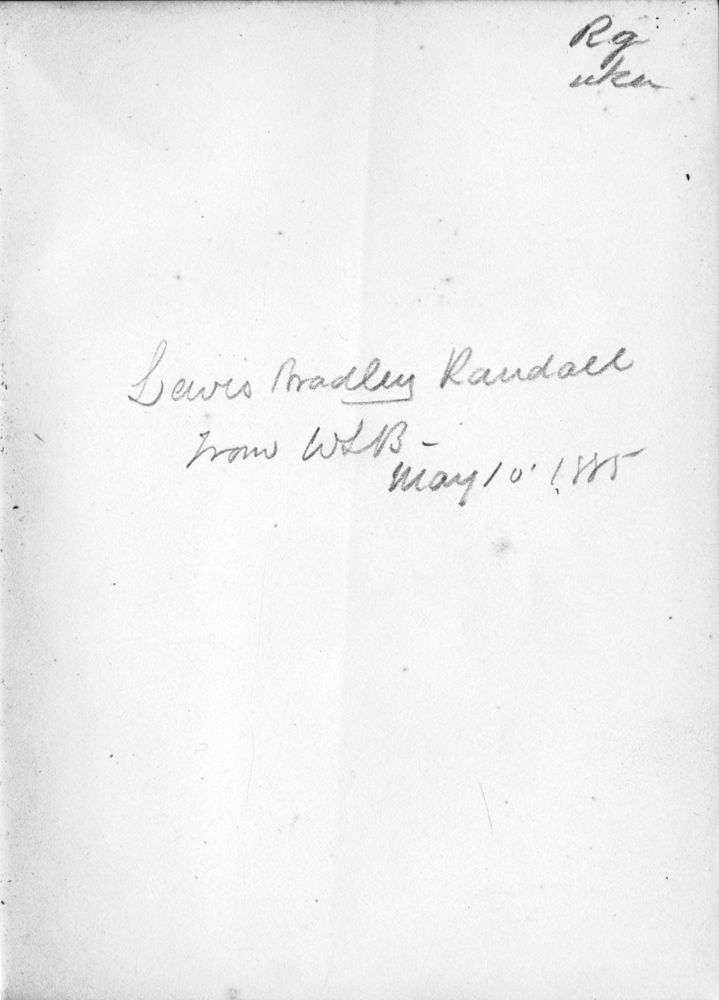 Rg
Lewis Bradley Randall
from WLB –
May 10' 1885